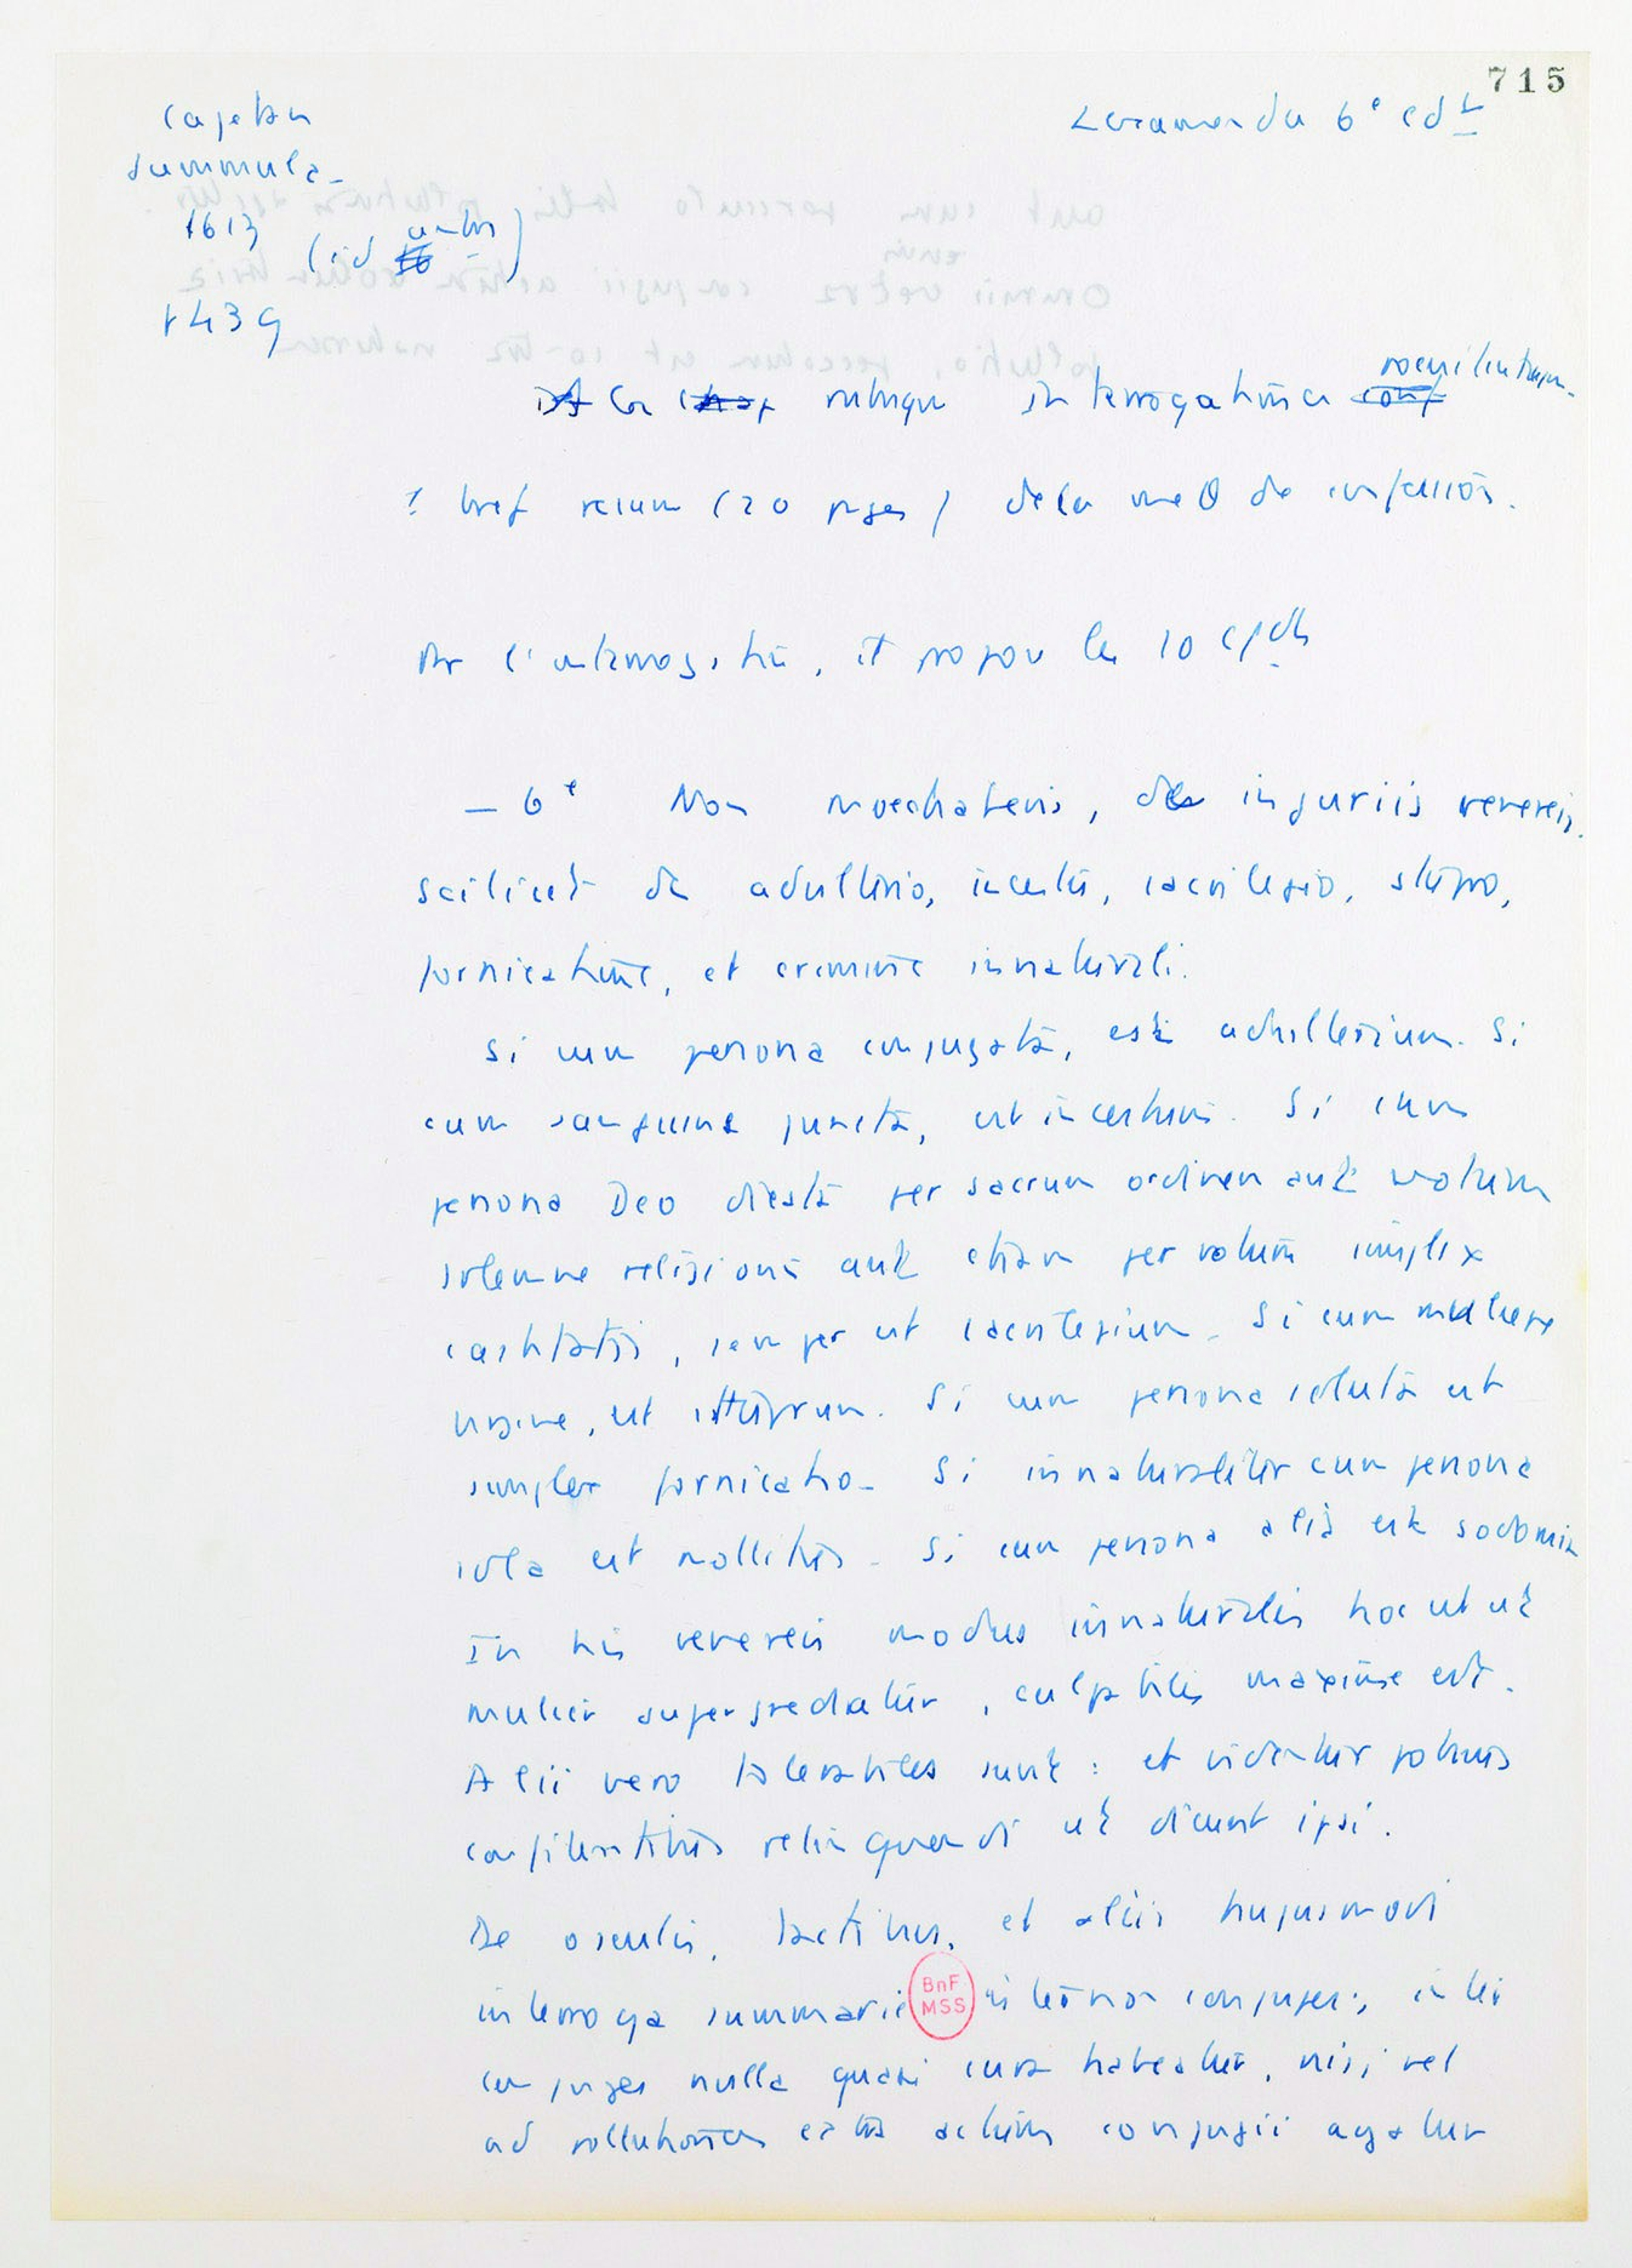 715
Cajetan
Summula
1613
p 439
6e
La rubrique interrogationes poenitentium.
1 bref résumé (20 pages) de la méθ de confession.
Pr l'interrogation, il propose les 10 cdts
— 6e Non moechaberis, de injuriis venereis.
Scilicet de adulterio, incestu, sacrilegio, stupro,
fornicatione, et crimine innaturali.
Si cum persona conjugata, est adulterium. Si
cum sanguine juncta, est incestum. Si cum
persona Deo dicata per sacrum ordinem aut votum
solemne religionis aut etiam per votum simplex
castitatis, semper est sacrilegium. Si cum muliere
virgine, est stuprum. Si cum persona soluta est
simplex fornicatio. Si innaturaliter cum persona
sola est mollities. Si cum persona alia est sodomia
In his venereis modus innaturalis hoc est ut
mulier supergrediatur, culpabilis maxime est.
Alii vero tolerabiles sunt : et videntur potius
confitentibus relinquendi ut dicent ipsi.
De osculis, tactibus, et aliis hujusmodi
interroga summarie BnF MSS inter non conjuges; inter
conjuges nulla quasi cura habeatur, nisi vel
ad pollutionem extra actum conjugii agatur